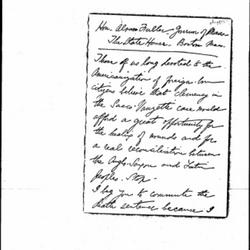 Hon. Alvan Fuller Governor of Mass
The State House. Boston Mass.
Those of us long devoted to the
Americanization of foreign-born
citizens believe that clemency in
the Sacco-Vanzetti case would
afford a great opportunity for
the healing of wounds and for
a real reconciliation between
the Anglo-Saxon and Latin
peoples. Stop-
I beg you to commute the
death sentence because I